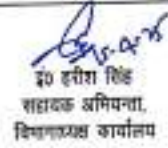 इं० हरीश सिंह
सहायक अभियन्ता,
विभागाध्यक्ष कार्यालय